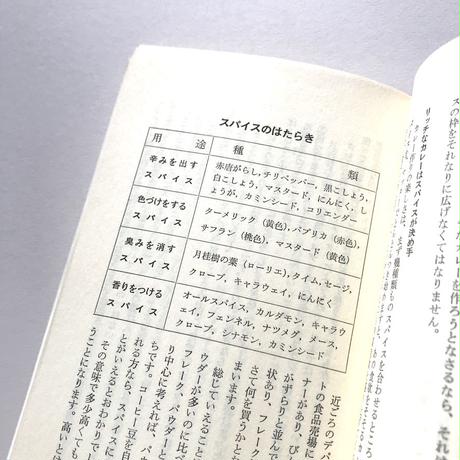 スの枠をそれなりに広げなくてはなりません。
リッチなカレーはスパイスが決め手
スパイスのはたらき
用 途 種 類
辛みを出す
スパイス
赤唐がらし，チリペッパー，黒こしょう，
白こしょう，マスタード，にんにく，し
ょうが，カミンシード，コリエンダー
色づけをする
スパイス
ターメリック（黄色），パプリカ（赤色），
サフラン（桃色），マスタード（黄色）
臭みを消す
スパイス
月桂樹の葉（ローリエ），タイム，セージ，
クローブ，キャラウェイ，にんにく
香りをつける
スパイス
オールスパイス，カルダモン，キャラウ
ェイ，フェンネル，ナツメグ，メース，
クローブ，シナモン，カミンシード
近ごろのデパ
トの食品売場に
ナーがあり、び
がずらりと並んで
状あり、フレーク
さて何を買うかとな
まいます。
総じていえること
ウダーが多いのに比べ
フレーク、パウダーと
り中心に考えれば、パ
ちです。コーヒー豆を自
れる方なら、スパイスも
とがいえるとおわかりで
その意味で多少高くても
うことになります。高いとは